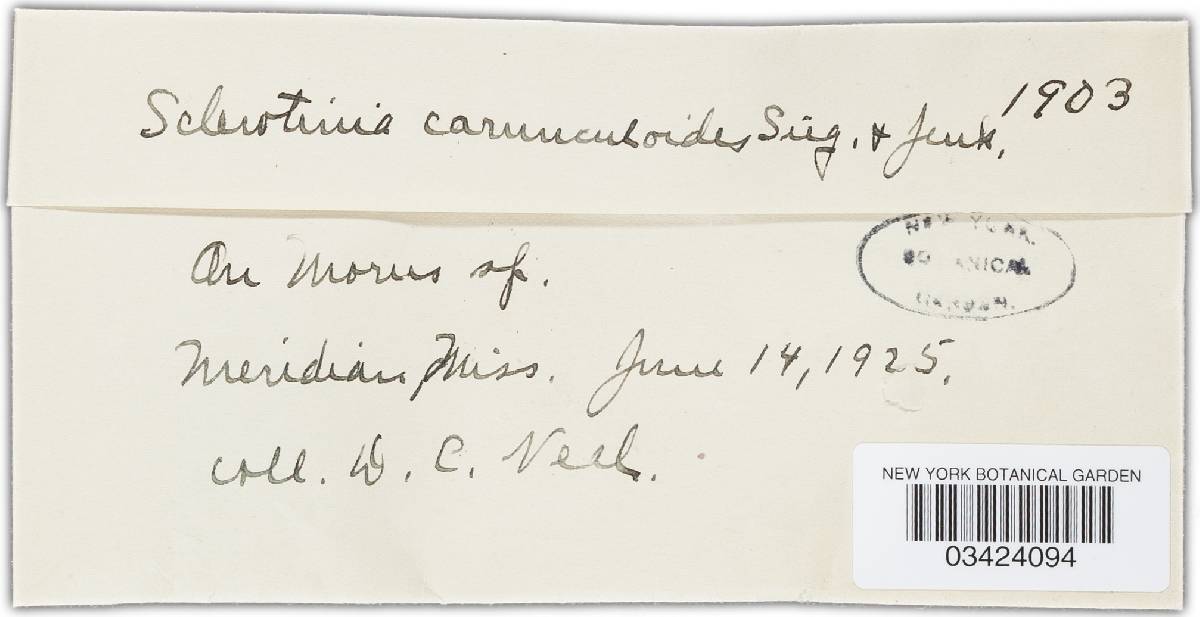 1903
Sclerotinia carunculoides Sieg. & Jenk.
NEW YORK
BOTANICAL
GARDEN.
On Morus sp.
Meridian, Miss. June 14, 1925.
coll. D. C. Neal.
NEW YORK BOTANICAL GARDEN
03424094